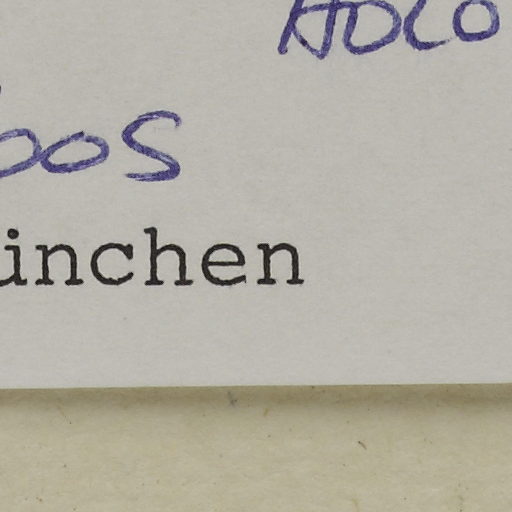 HOLO
oos
ünchen